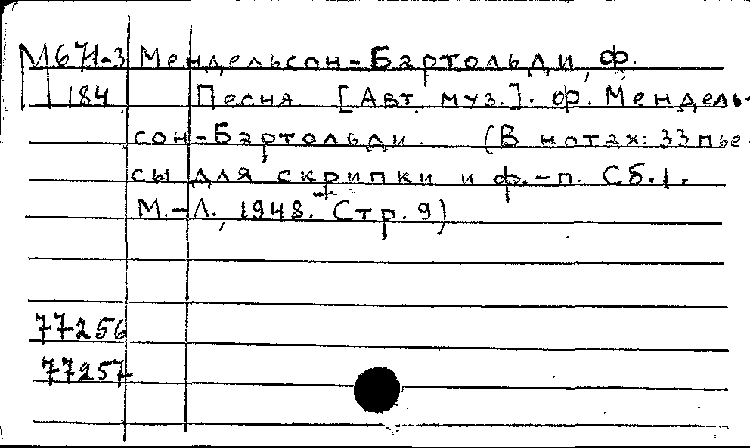 М671-3 Мендельсон-Бартольди, Ф.
184 Песня. [Авт. муз.]. Ф. Мендель-
сон-Бартольди. (В нотах: 33 пье-
сы для скрипки и ф.-п. Сб.1.
М.-Л., 1948. Стр. 9)
77256
77257